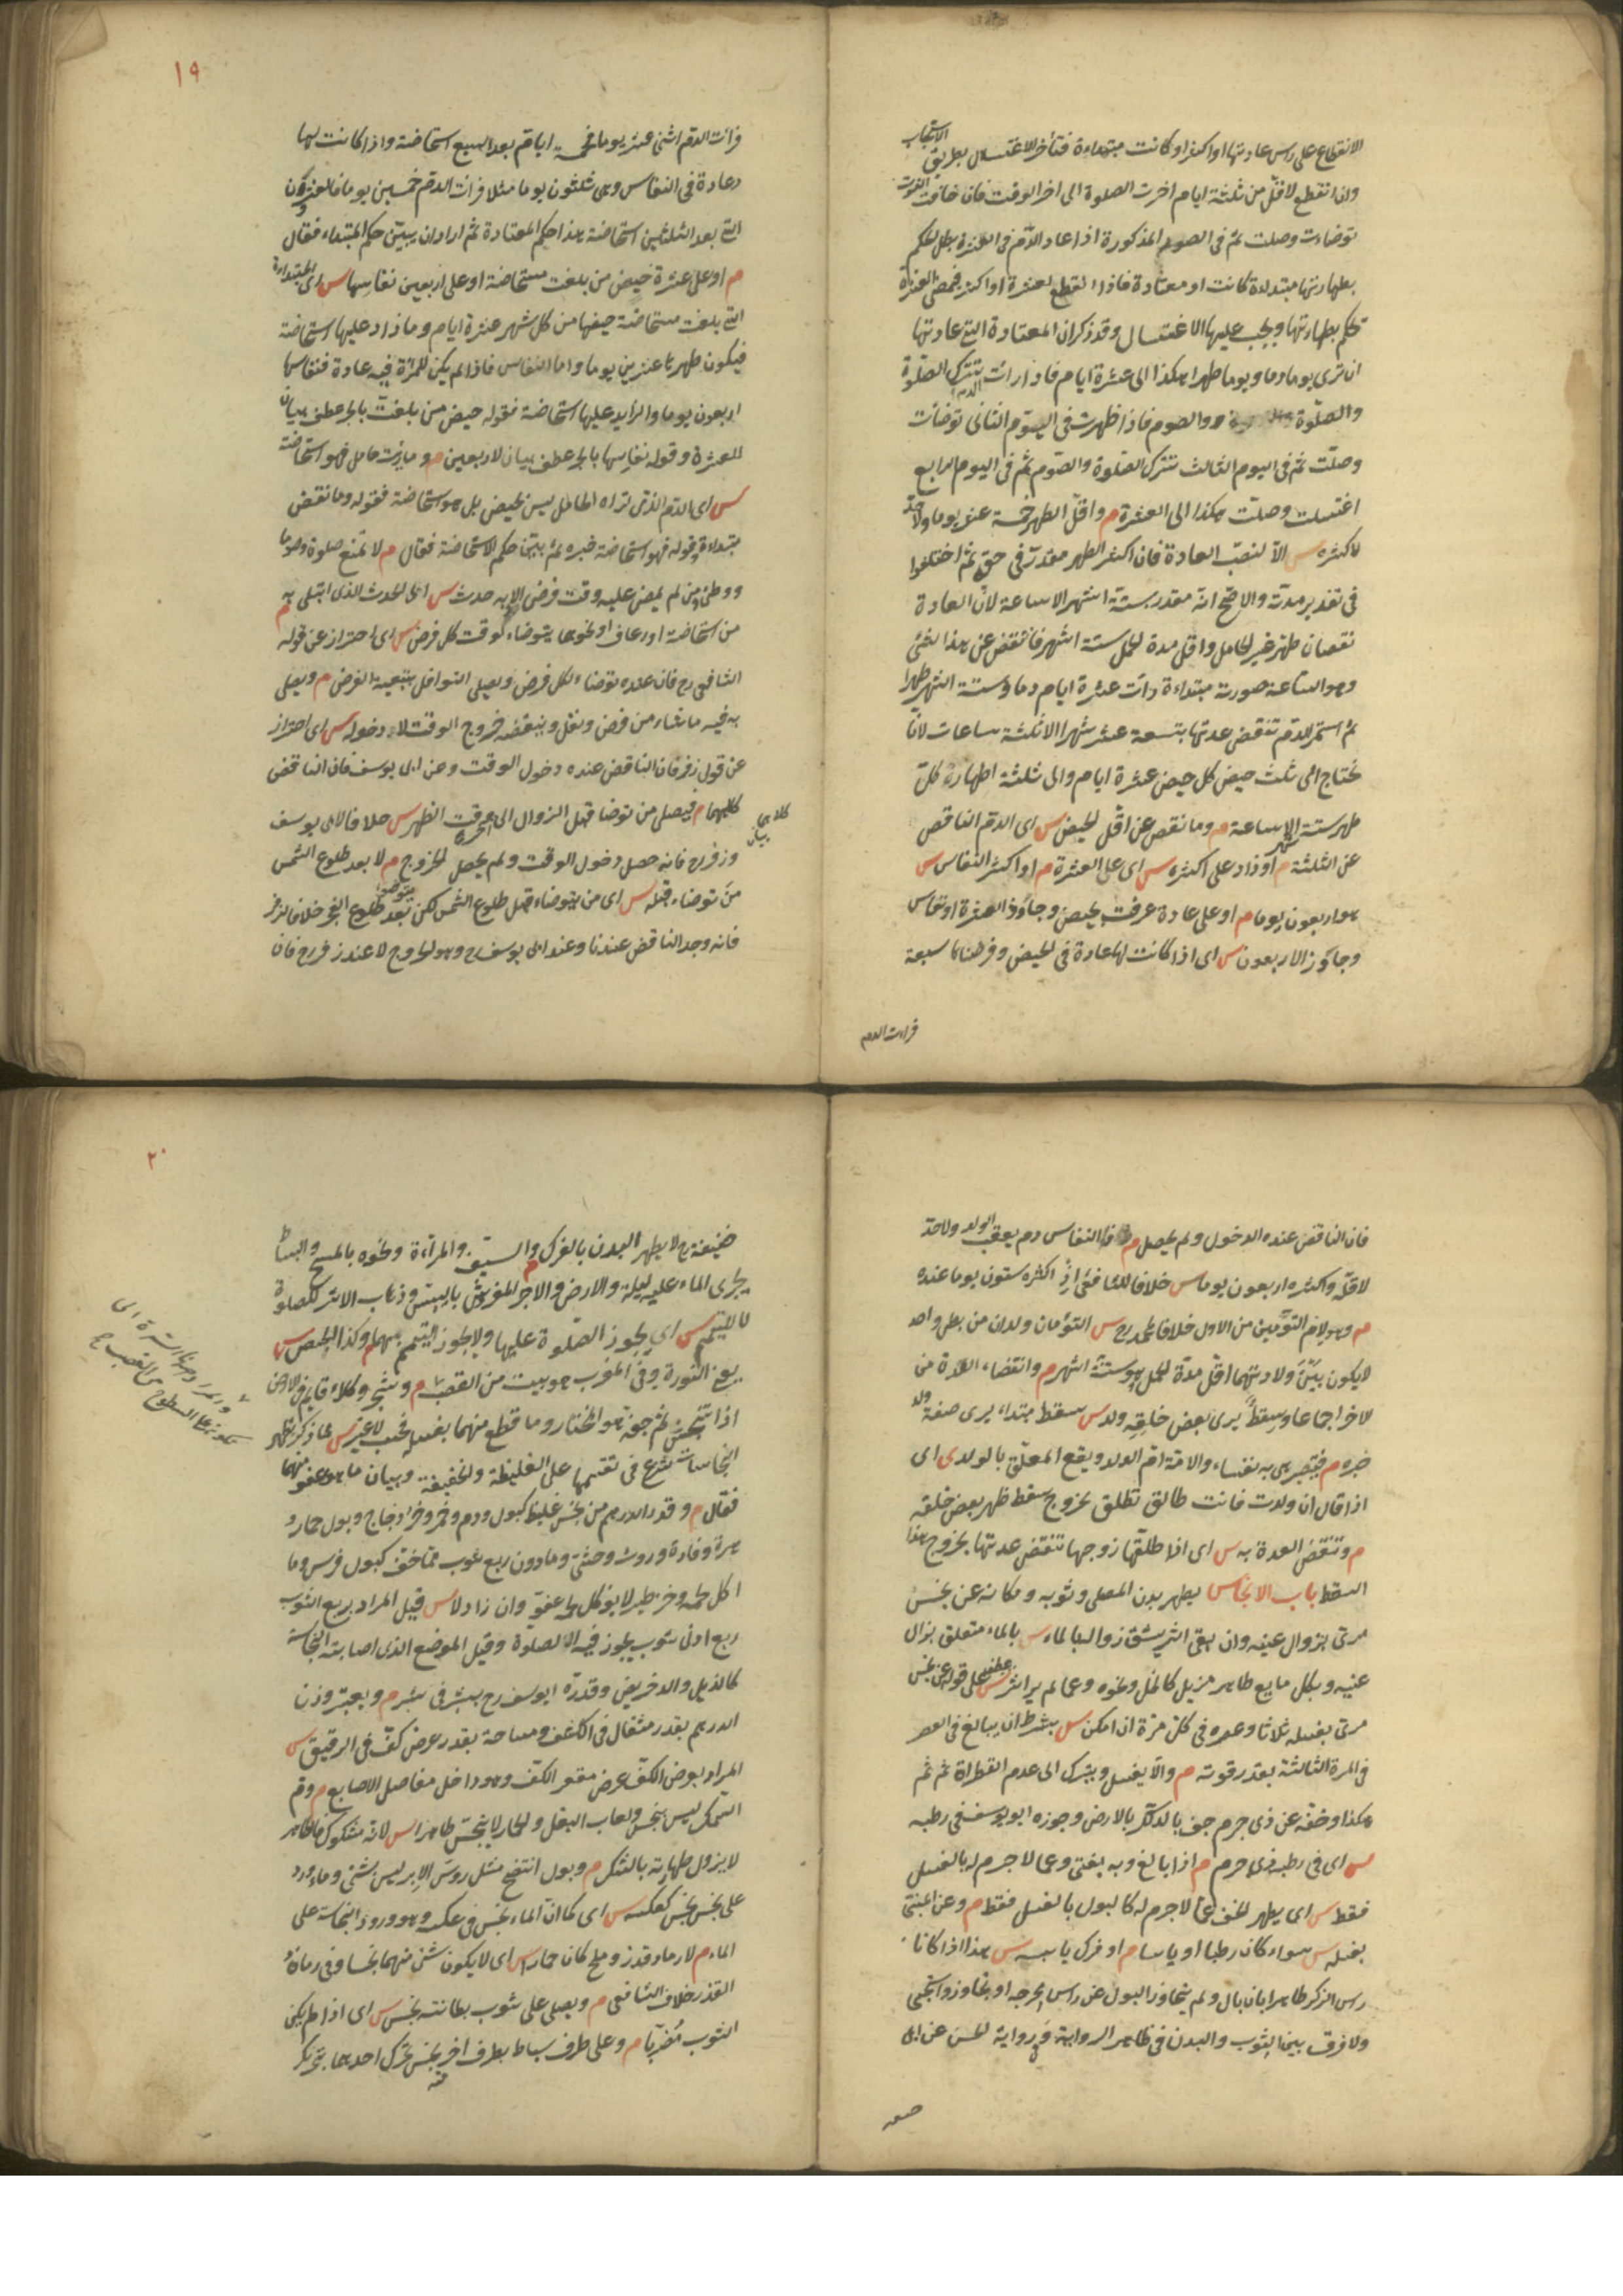 الانقطاع على راس عادتها او اكثر او كانت مبتداءة فتأخر الاغتسال بطريق الاستحباب
وان انقطع لاقل من ثلثة ايام اخرت الصلوة الى اخر الوقت فان خافت الفوت
توضاءت وصلت ثم فى الصوم المذكورة اذا عاد الدم فى العشرة بطل الحكم
بطهارتها مبتداءة كانت او معتادة فاذا انقطع لعشرة او اكثر فبمضى العشرة
تحكم بطهارتها ويجب عليها الاغتسال وقد ذكر ان المعتادة التى عادتها
ان ترى يوما دما ويوما طهرا هكذا الى عشرة ايام فاذا رات الدم تترك الصلوة
والصلوة والصوم فاذا طهرت فى اليوم الثانى توضأت
وصلت ثم فى اليوم الثالث تترك الصلوة والصوم ثم فى اليوم الرابع
اغتسلت وصلت هكذا الى العشرة م واقل الطهر خمسة عشر يوما ولا حد
لاكثره س الا لنصب العادة فان اكثر الطهر مقدر فى حقه ثم اختلفوا
فى تقدير مدته والاصح انه مقدر بستة اشهر الا ساعة لان العادة
نقصان طهر غير الحامل واقل مدة الحمل ستة اشهر فانتقص عن هذا بشئ
وهو الساعة صورته مبتداءة رأت عشرة ايام دما وستة اشهر طهرا
ثم استمر الدم تنقضى عدتها بتسعة عشر شهرا الا ثلثة ساعات لانا
نحتاج الى ثلث حيض كل حيض عشرة ايام والى ثلثة اطهار كل
طهر ستة اشهر الا ساعة م وما نقص عن اقل الحيض س اى الدم الناقص
عن الثلثة م او زاد على اكثره س اى على العشرة م او اكثر النفاس س
هو اربعون يوما م او على عادة عرفت لحيض وجاوز العشرة او نفاس
وجاوز الاربعون س اى اذا كانت لها عادة فى الحيض وفرضناها سبعة
فرات الدم
١٩
فرأت الدم اثنى عشر يوما فخمسة ايام بعد السبع استحاضة واذا كانت لها
عادة فى النفاس وهى ثلثون يوما مثلا فرات الدم خمسين يوما فالعشرون
التى بعد الثلثين استحاضة هذا حكم المعتادة ثم اراد ان يبين حكم المبتداءة فقال
م او على عشرة حيض من بلغت مستحاضة او على اربعين نفاسها س اى المبتداءة
التى بلغت مستحاضة حيضها من كل شهر عشرة ايام وما زاد عليها استحاضة
فيكون طهرها عشرين يوما واما النفاس فاذا لم يكن للمرأة فيه عادة فنفاسها
اربعون يوما والزايد عليها استحاضة فقوله حيض من بلغت بالجر عطف بيان
للعشرة وقوله نفاسها بالجر عطف بيان لاربعين م وما رأت حامل فهو استحاضة
س اى الدم الذى تراه الحامل ليس بحيض بل هو استحاضة فقوله وما نقص
مبتداء وقوله فهو استحاضة خبره ثم بين حكم الاستحاضة فقال م لا تمنع صلوة وصوما
ووطئ ومن لم يمض عليه وقت فرض الا وبه حدث س اى الحدث الذى ابتلى به م
من استحاضة او رعاف او نحوهما يتوضاء لوقت كل فرض س اى احتراز عن قوله
الشافعى رح فان عنده يتوضاء لكل فرض ويصلى النوافل بتبعية الفرض م ويصلى
به فيه ما شاء من فرض ونفل وينقضه خروج الوقت لا دخوله س اى احتراز
عن قول زفر فان الناقض عنده دخول الوقت وعن ابى يوسف فان الناقض
كلاهما م فيصلى من توضا قبل الزوال الى اخر وقت الظهر س خلافا لابى يوسف
وزفر رح فانه حصل دخول الوقت ولم يحصل الخروج م لا بعد طلوع الشمس
من توضاء قبله س اى من يتوضاء قبل طلوع الشمس لكن توضأ بعد طلوع الفجر خلافا لزفر
فانه وجد الناقض عندنا وعند ابى يوسف رح وهو الخروج لا عند زفر رح فان
كلاهما
بيان
فان الناقض عنده الدخول ولم يحصل م النفاس دم يعقب الولد ولا حد
لاقله واكثره اربعون يوما س خلافا للشافعى اذ اكثره ستون يوما عنده
م وهو لام التوأمين من الاول خلافا لمحمد رح س التوأمان ولدان من بطن واحد
لا يكون بين ولادتهما اقل مدة الحمل وهو ستة اشهر م وانقضاء العدة من
الاخر اجماعا وسقط يرى بعض خلقه ولد س سقط مبتداء يرى صفة ولد
خبره م فتصير هى به نفساء والامة ام الولد ويقع المعلق بالولد اى
اذا قال ان ولدت فانت طالق تطلق بخروج سقط ظهر بعض خلقه
م وتنقضى العدة به س اى اذا طلقها زوجها تنقضى عدتها بخروج هذا
السقط باب الانجاس يطهر بدن المصلى وثوبه ومكانه عن نجس
مرئى بزوال عينه وان بقى اثر يشق زواله بالماء س بالماء متعلق بزوال
عينه وبكل مايع طاهر مزيل كالخل ونحوه وعما لم ير اثره س عطف على قوله عن نجس
مرئى بغسله ثلاثا وعصره فى كل مرة ان امكن س بشرط ان يبالغ فى العصر
فى المرة الثالثة بقدر قوته م والا يغسل ويترك الى عدم القطرات ثم ثم
هكذا وخفه عن ذى جرم جف بالدلك بالارض وجوزه ابو يوسف فى رطبه
س اى فى رطب ذى جرم م اذا بالغ وبه يفتى وعما لا جرم له بالغسل
فقط س اى يطهر الخف عما لا جرم له كالبول بالغسل فقط م وعن المنى
بغسله س سواء كان رطبا او يابسا م او فرك يابسه س هذا اذا كانا
راس الذكر طاهرا بان بال ولم يتجاوز البول عن راس مخرجه او تجاوز واستنجى
ولا فرق بين الثوب والبدن فى ظاهر الرواية وفى رواية الحسن عن ابى
حنيفة
٢٠
حنيفة رح لا يطهر البدن بالفرك م والسيف والمرآة ونحوه بالمسح والبساط
يجرى الماء عليه ليلة والارض والاجر المفروش باليبس وذهاب الاثر للصلوة
لا للتيمم س اى يجوز الصلوة عليها ولا يجوز التيمم بهما م وكذا الخص س
يعنى السترة وفى المغرب هو بيت من القصب م وشجر وكلاء قايم فى الارض
اذا تنجس ثم جف هو المختار وما قطع منهما يغسل فحسب لا غير س لما ذكر تطهير
النجاسات شرع فى تقسيمها على الغليظة والخفيفة وبيان ما هو عفو منهما
فقال م وقدر الدرهم من نجس غليظ كبول ودم وخمر وخرء دجاج وبول حمار و
هرة وفارة وروث وخثى وما دون ربع ثوب مما خف كبول فرس وما
اكل لحمه وخرء طير لا يؤكل لحمه عفو وان زاد لا س قيل المراد بربع الثوب
ربع ادنى ثوب يجوز فيه الصلوة وقيل الموضع الذى اصابته النجاسة
كالذيل والدخريص وقدره ابو يوسف رح بشبر فى شبر م ويعتبر وزن
الدرهم بقدر مثقال فى الكثيف ومساحة بقدر عرض كف فى الرقيق س
المراد بعرض الكف عرض مقعر الكف وهو داخل مفاصل الاصابع م ودم
السمك ليس بنجس ولعاب البغل والحمار لا ينجس طاهرا س لانه مشكوك فالطاهر
لا يزول طهارته بالشك م وبول انتضح مثل رؤس الابر ليس بشئ وماء ورد
على نجس نجس كعكسه س اى كما ان الماء نجس فى عكسه وهو ورود النجاسة على
الماء م لا رماد قذر وملح كان حمارا س اى لا يكون شئ منهما نجسا وفى رماد
القذر خلاف الشافعى م ويصلى على ثوب بطانته نجس س اى اذا لم يكن
الثوب مضربا م وعلى طرف بساط بطرف اخر نجس تحرك احدهما بتحريكه